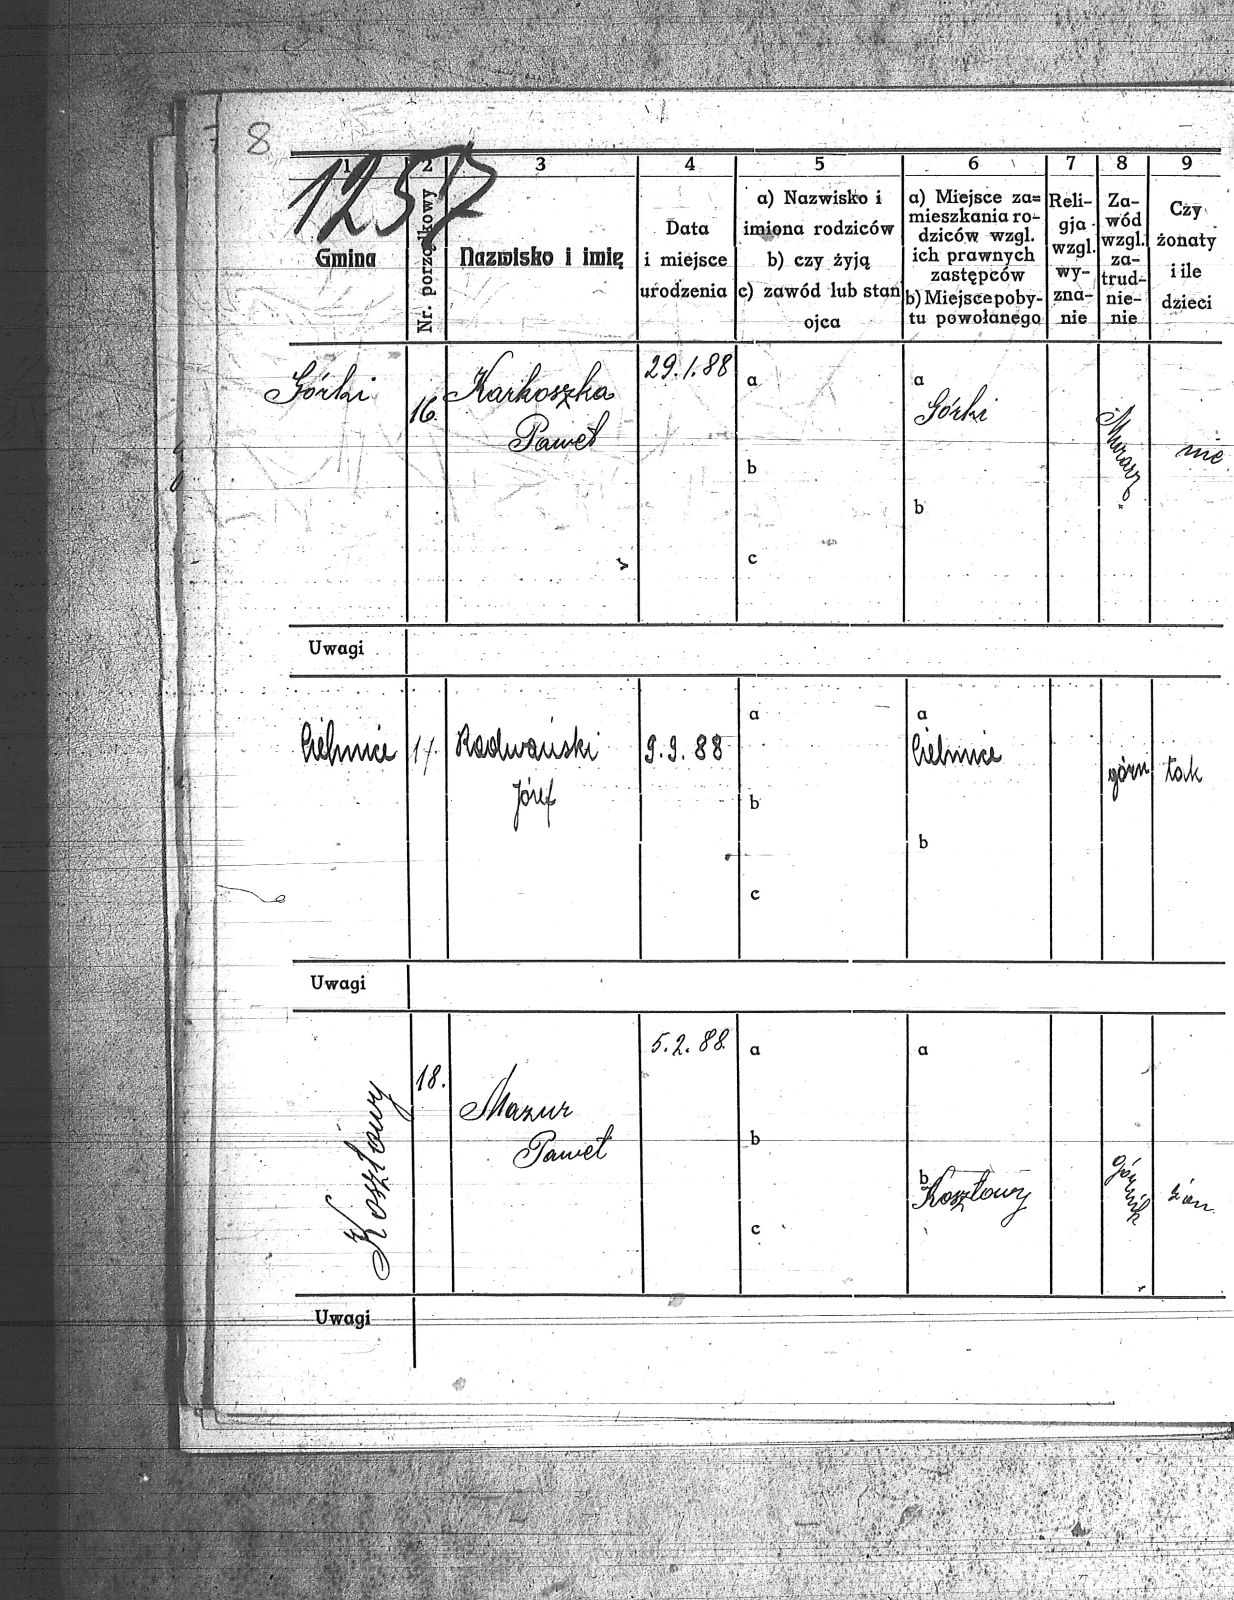 8
1257
1 2 3 4 5 6 7 8 9
Gmina
Nr. porządkowy
Nazwisko i imię
Data
i miejsce
urodzenia
a) Nazwisko i
imiona rodziców
b) czy żyją
c) zawód lub stan
ojca
a) Miejsce za=
mieszkania ro-
dziców wzgl.
ich prawnych
zastępców
b) Miejsce poby-
tu powołanego
Reli-
gja
wzgl.
wy-
zna-
nie
Za-
wód
wzgl.
za-
trud-
nie-
nie
Czy
żonaty
i ile
dzieci
Górki
16.
Karkoszka
Paweł
29.1.88
a
b
c
a
Górki
b
Murarz
nie
Uwagi
Cielmice
17.
Radwański
Józef
9.9.88
a
b
c
a
Cielmice
b
górn
tak
Uwagi
Kosztowy
18.
Mazur
Paweł
5.2.88.
a
b
c
a
b
Kosztowy
Górnik
żon.
Uwagi